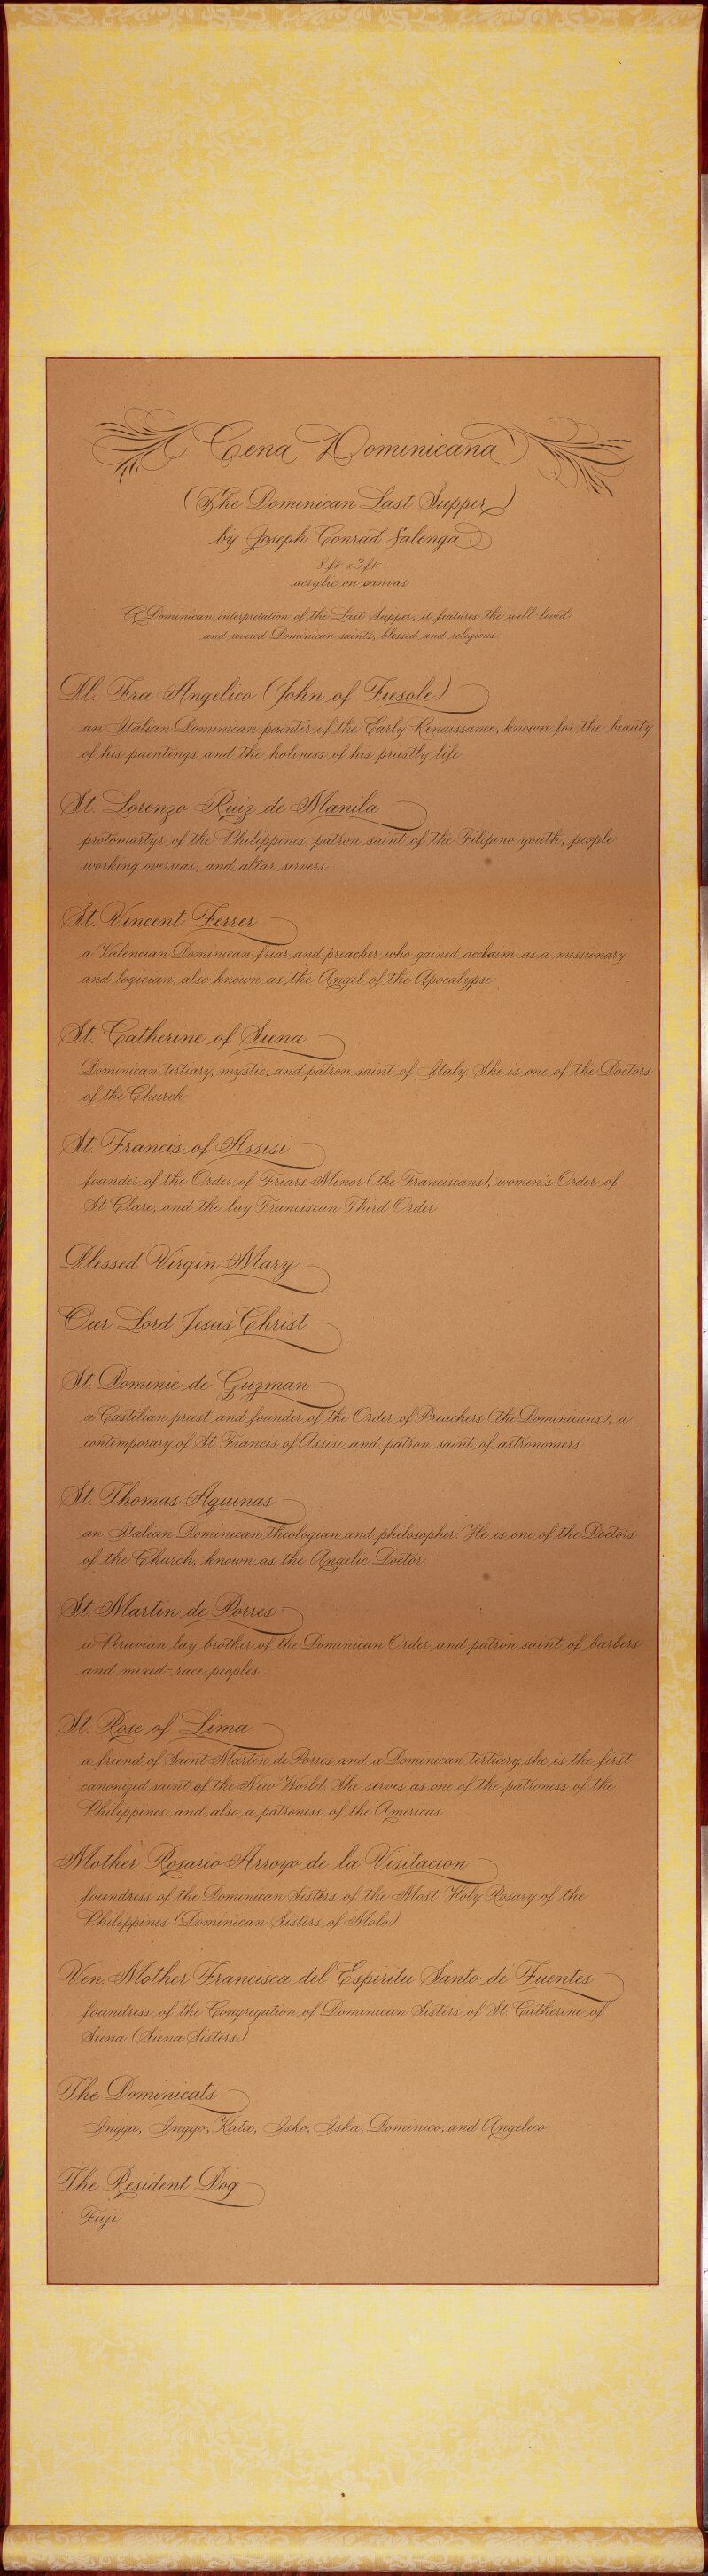 Cena Dominicana
(The Dominican Last Supper)
by Joseph Conrad Salenga
8 ft x 3 ft
acrylic on canvas
A Dominican interpretation of the Last Supper, it features the well-loved
and revered Dominican saints, blessed and religious.
Bl. Fra Angelico (John of Fiesole)
an Italian Dominican painter of the Early Renaissance, known for the beauty
of his paintings and the holiness of his priestly life
St. Lorenzo Ruiz de Manila
protomartyr of the Philippines, patron saint of the Filipino youth, people
working overseas, and altar servers
St. Vincent Ferrer
a Valencian Dominican friar and preacher who gained acclaim as a missionary
and logician, also known as the Angel of the Apocalypse
St. Catherine of Siena
Dominican tertiary, mystic, and patron saint of Italy. She is one of the Doctors
of the Church
St. Francis of Assisi
founder of the Order of Friars Minor (the Franciscans), women's Order of
St. Clare, and the lay Franciscan Third Order
Blessed Virgin Mary
Our Lord Jesus Christ
St. Dominic de Guzman
a Castilian priest and founder of the Order of Preachers (the Dominicans), a
contemporary of St. Francis of Assisi and patron saint of astronomers
St. Thomas Aquinas
an Italian Dominican theologian and philosopher. He is one of the Doctors
of the Church, known as the Angelic Doctor.
St. Martin de Porres
a Peruvian lay brother of the Dominican Order and patron saint of barbers
and mixed-race peoples
St. Rose of Lima
a friend of Saint Martin de Porres and a Dominican tertiary, she is the first
canonized saint of the New World. She serves as one of the patroness of the
Philippines, and also a patroness of the Americas
Mother Rosario Arroyo de la Visitacion
foundress of the Dominican Sisters of the Most Holy Rosary of the
Philippines (Dominican Sisters of Molo)
Ven. Mother Francisca del Espiritu Santo de Fuentes
foundress of the Congregation of Dominican Sisters of St. Catherine of
Siena (Siena Sisters)
The Dominicats
Ingga, Inggo, Kata, Isko, Iska, Dominico, and Angelico
The Resident Dog
Fuji